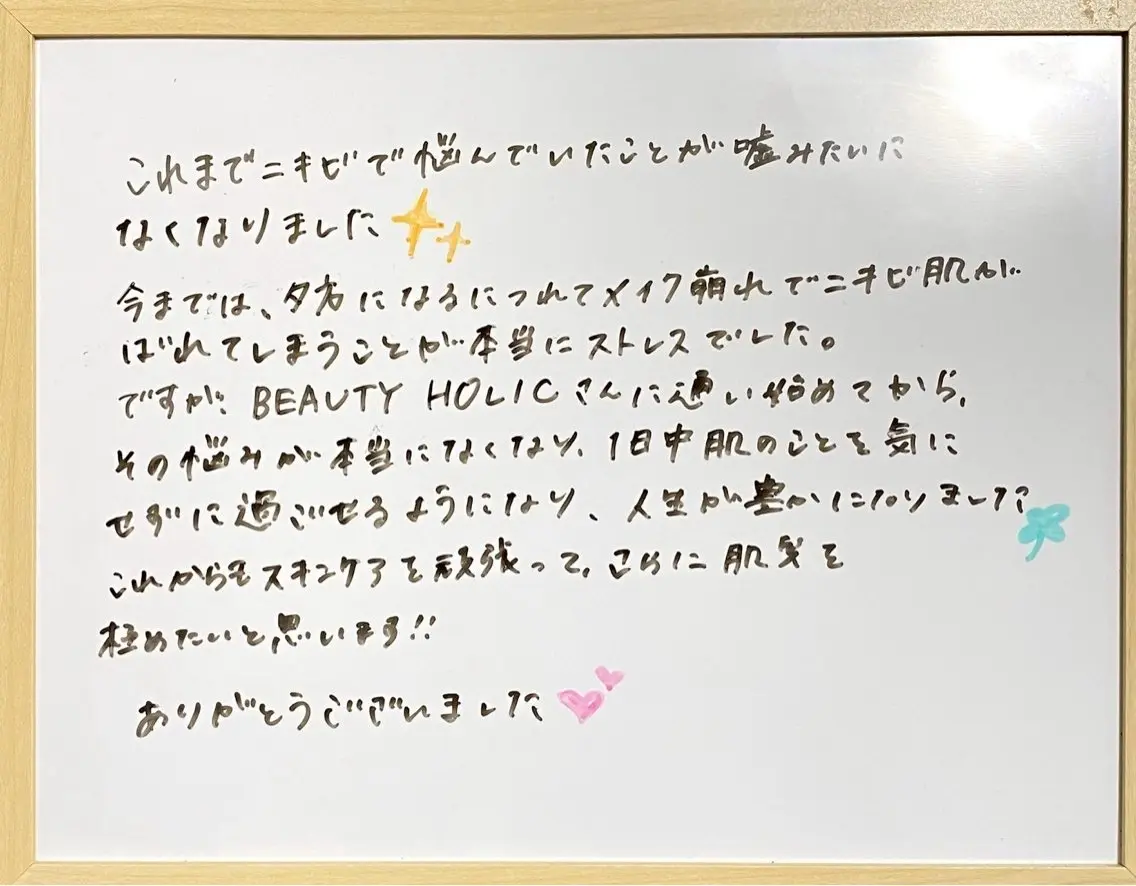 これまでニキビで悩んでいたことが嘘みたいに
なくなりました
今までは、夕方になるにつれてメイク崩れでニキビ肌が
ばれてしまうことが本当にストレスでした。
ですが、BEAUTY HOLICさんに通い始めてから、
その悩みが本当になくなり、1日中肌のことを気に
せずに過ごせるようになり、人生が豊かになりました
これからもスキンケアを頑張って、さらに肌質を
極めたいと思います!!
ありがとうございました